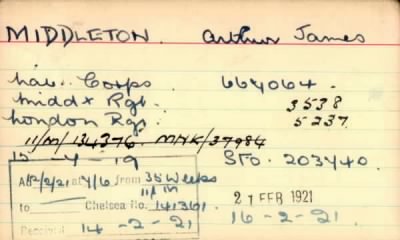 MIDDLETON. Arthur James
Lab. Corps. 664064.
Middx Rgt. 3538
London Rgt. 5237
11/M/134376. MHK/37984
12-4-19 Sto. 203440.
AP/2/21 at 4/6 from 35 Weeks
11/1/19
to Chelsea No. 141361
21 FEB 1921
14-2-21 16-2-21